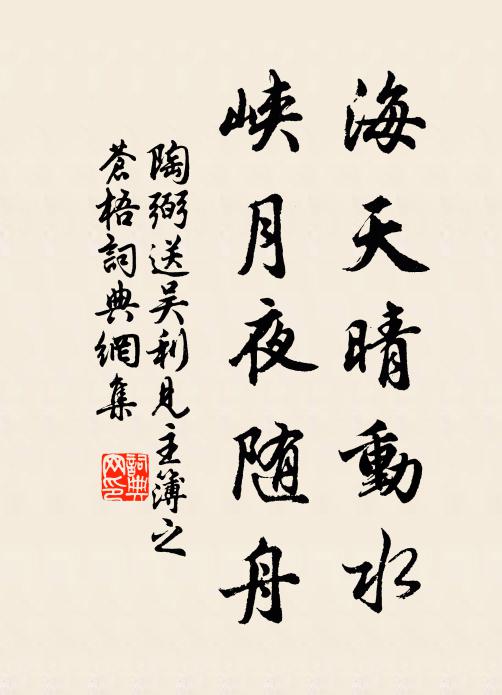 海天晴動水
峽月夜随舟
陶弼送吴利見主簿之
蒼梧詞典網集
詞典网印